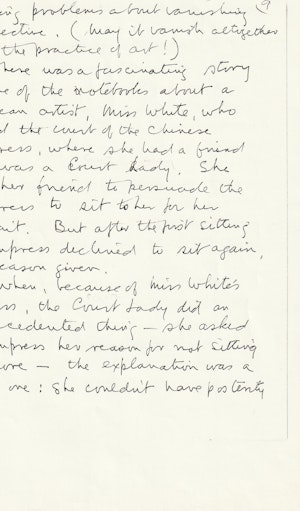 ing problems about vanishing
ective. (May it vanish altogether
the practice of art!)
here was a fascinating story
e of the notebooks about a
ean artist, Miss White, who
d the court of the Chinese
ress, where she had a friend
was a Court Lady. She
her friend to persuade the
ress to sit to her for her
ait. But after the first sitting
mpress declined to sit again,
eason given.
when, because of Miss White's
ss, the Court Lady did an
cedented thing — she asked
mpress her reason for not sitting
ore — the explanation was a
one: she couldn't have posterity